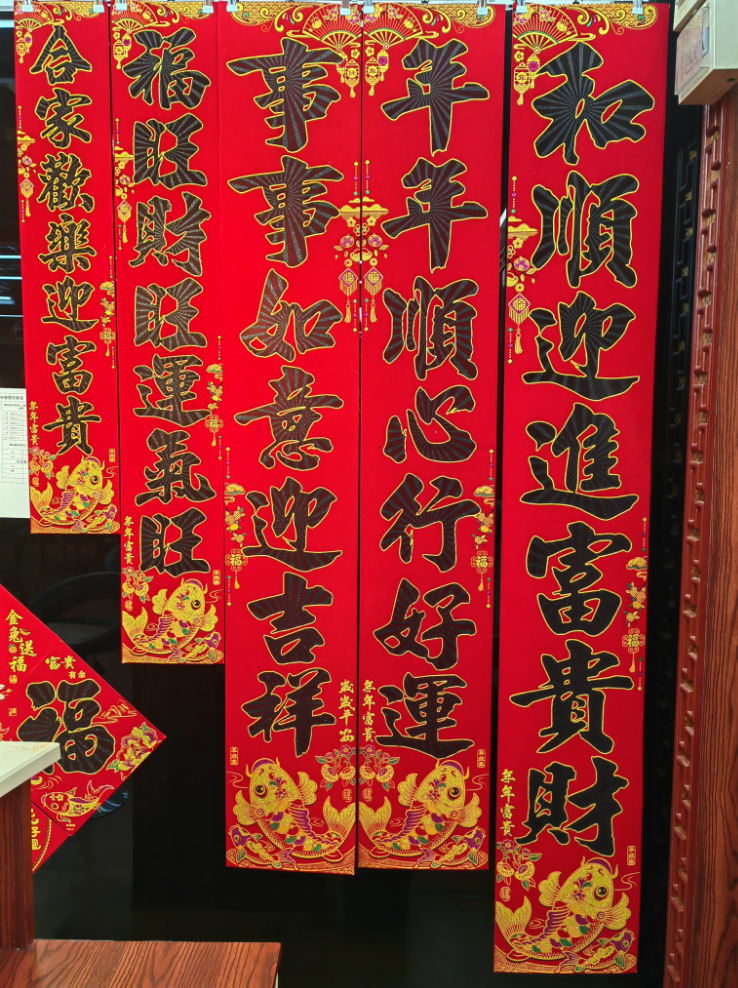 和順迎進富貴財
年富貴
年年順心行好運
年富貴
事事如意迎吉祥
歲歲平安
福旺財旺運氣旺
年富貴
合家歡樂迎富貴
年富貴
金兔送福
富贵有余
福